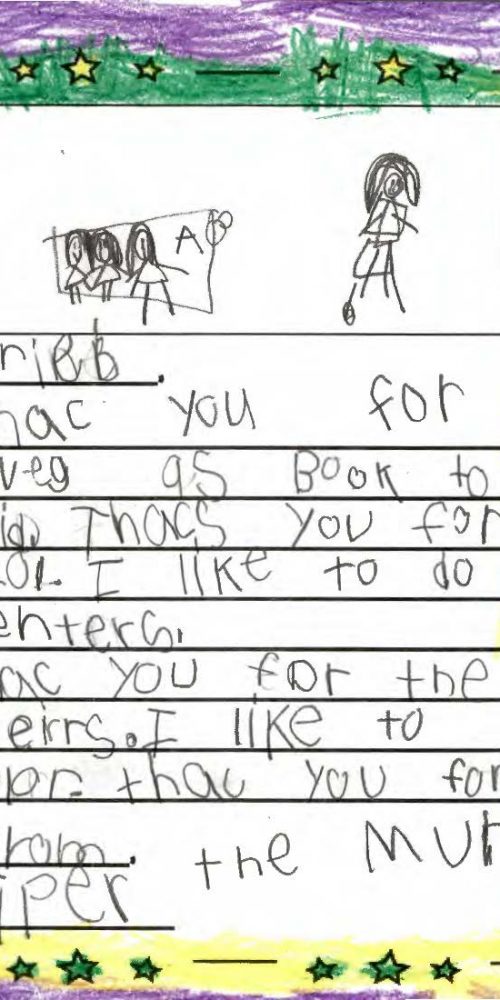 A B
riBB.
hac you for
veg as Book to
id Thacs you for
ol. I like to do
enters.
ac you for the
eirrs. I like to
por. thac you for
rom. the Mur
iper